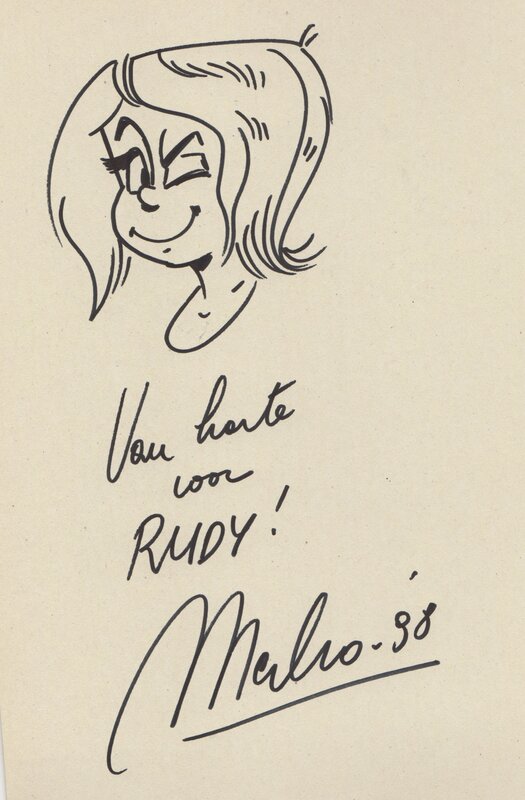 Van harte
voor
RUDY!
Merho - '98